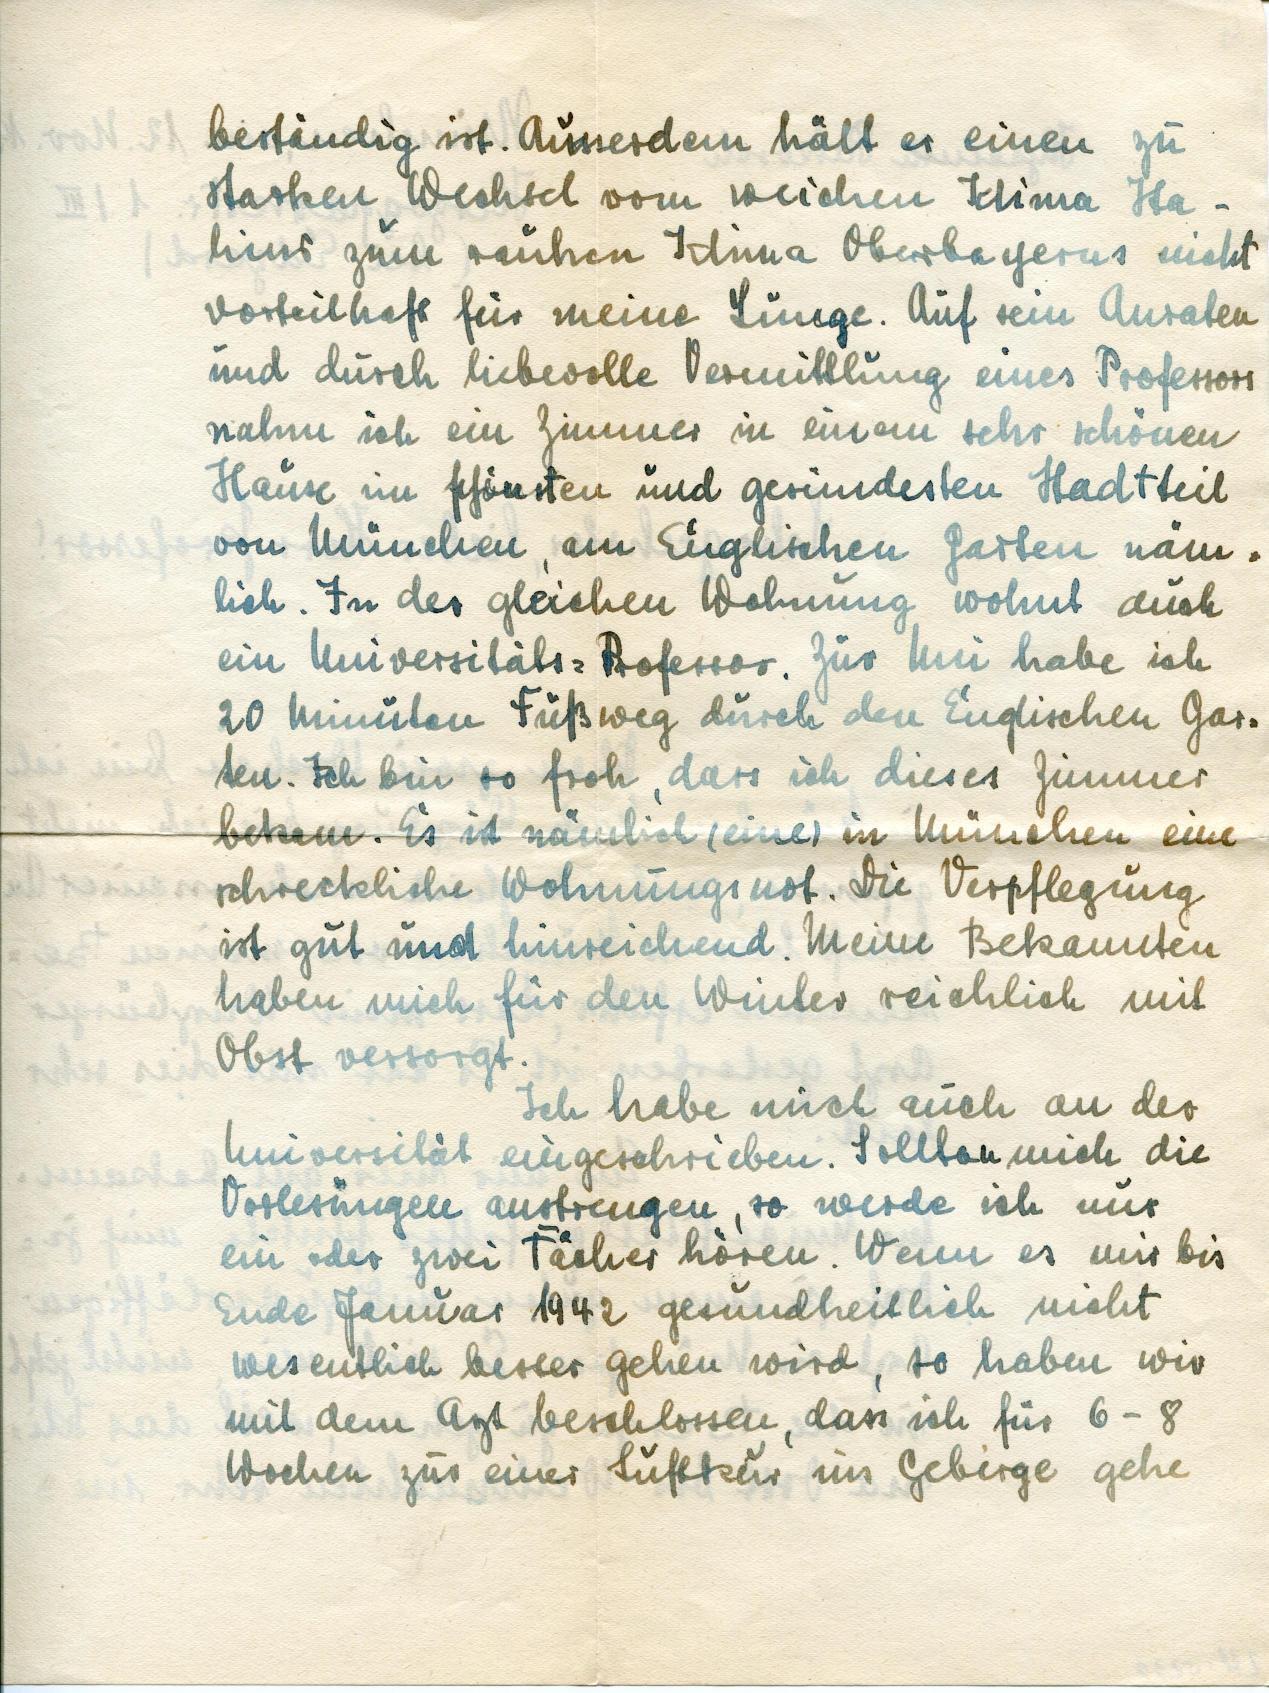 beständig ist. Ausserdem hält er einen zu
starken Wechsel vom weichen Klima Ita-
liens zum rauhen Klima Oberbayerns nicht
vorteilhaft für meine Lunge. Auf sein Anraten
und durch liebevolle Vermittlung eines Professors
nahm ich ein Zimmer in einem sehr schönen
Hause im schönsten und gesündesten Stadtteil
von München, am Englischen Garten näm-
lich. In der gleichen Wohnung wohnt auch
ein Universitäts-Professor. Zur Uni habe ich
20 Minuten Fußweg durch den Englischen Gar-
ten. Ich bin so froh, dass ich dieses Zimmer
bekam. Es ist nämlich (eine) in München eine
schreckliche Wohnungsnot. Die Verpflegung
ist gut und hinreichend. Meine Bekannten
haben mich für den Winter reichlich mit
Obst versorgt.
Ich habe mich auch an der
Universität eingeschrieben. Sollten mich die
Vorlesungen anstrengen, so werde ich nur
ein oder zwei Fächer hören. Wenn es mir bis
Ende Januar 1942 gesundheitlich nicht
wesentlich besser gehen wird, so haben wir
mit dem Arzt beschlossen, dass ich für 6-8
Wochen zur einer Luftkur ins Gebirge gehe